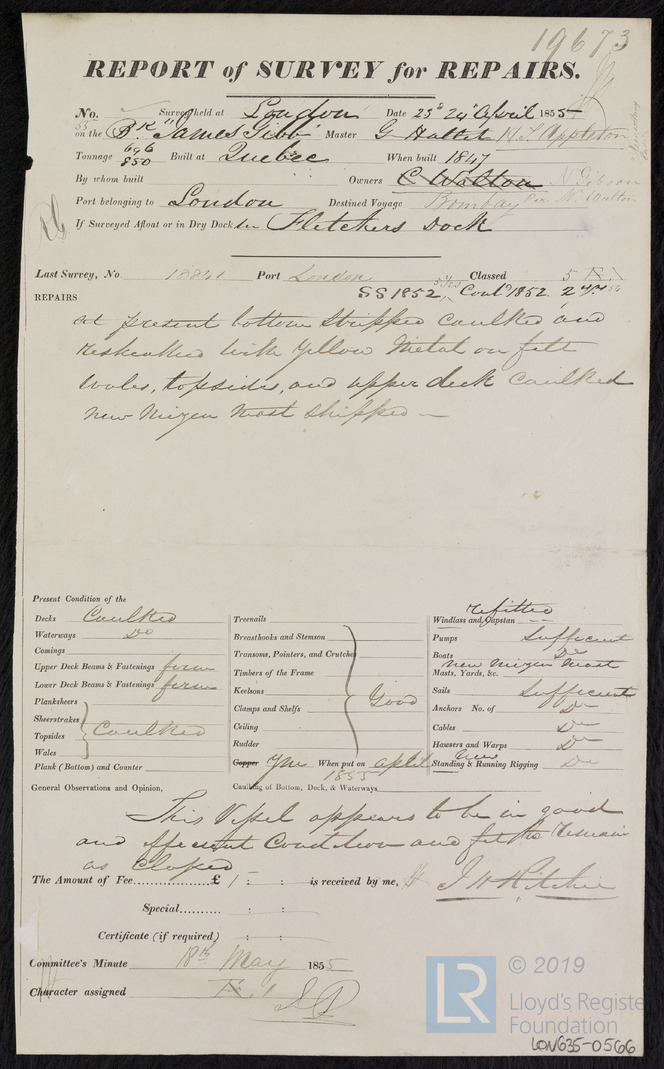 19673
REPORT of SURVEY for REPAIRS.
No. Survey held at London Date 23d 24 April 1855
on the Bk "James Gibb" Master G Halket H. S. Appleton
Tonnage 696 850 Built at Quebec When built 1847
By whom built Owners C Walton N Gibson
Port belonging to London Destined Voyage Bombay Per. M. Walton
If Surveyed Afloat or in Dry Dock In Fletchers Dock
Last Survey, No 18841 Port London Classed 5
REPAIRS SS 1852, Cont 1852 2 yrs
at present bottom stripped caulked and
resheathed with Yellow Metal on felt
Wales, topsides, and upper deck caulked
new Mizen Mast shipped
Present Condition of the
Decks Caulked
Waterways Do
Comings
Upper Deck Beams & Fastenings firm
Lower Deck Beams & Fastenings firm
Planksheers
Sheerstrakes
Topsides Caulked
Wales
Plank (Bottom) and Counter
Treenails
Breasthooks and Stemson
Transoms, Pointers, and Crutches
Timbers of the Frame
Keelsons Good
Clamps and Shelfs
Ceiling
Rudder
Copper Ym When put on april
1855
Caulking of Bottom, Deck, & Waterways
refitted
Windlass and Capstan
Pumps Sufficient
Boats Do
new Mizen Mast
Masts, Yards, &c.
Sails Sufficient
Anchors No. of Do
Cables Do
Hawsers and Warps Do
New
Standing & Running Rigging Do
General Observations and Opinion,
This Vessel appears to be in good
and efficient Condition and fit to remain
as Classed
The Amount of Fee £ 1 : : is received by me, J H Ritchie
Special : :
Certificate (if required) : :
Committee's Minute 18th May 1855
Character assigned
LR © 2019
Lloyd's Register
Foundation
LON635-0566